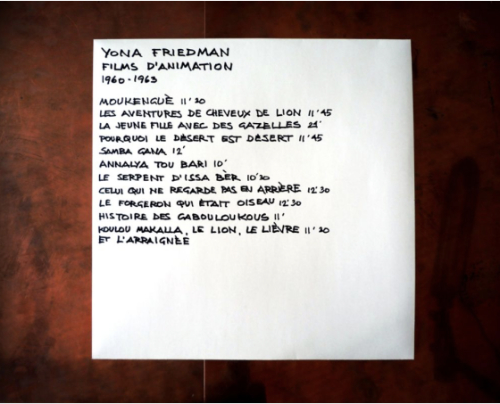 YONA FRIEDMAN
FILMS D'ANIMATION
1960-1963
MOUKENGUÈ 11'20
LES AVENTURES DE CHEVEUX DE LION 11'45
LA JEUNE FILLE AVEC DES GAZELLES 21'
POURQUOI LE DÉSERT EST DÉSERT 11'45
SAMBA GANA 12'
ANNALYA TOU BARI 10'
LE SERPENT D'ISSA BÈR 10'30
CELUI QUI NE REGARDE PAS EN ARRIÈRE 12'30
LE FORGERON QUI ÉTAIT OISEAU 12'30
HISTOIRE DES GABOULOUKOUS 11'
KOULOU MAKALLA, LE LION, LE LIÈVRE 11'20
ET L'ARRAIGNÉE